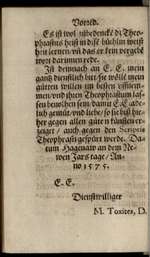 Vorred.
Es ist wol zubedencken dz Theo-
phrastus heist in dise büchlin weiß-
heit lernen/ vñ das er kein vergebē
wort darinnen rede.
Ist demnach an E. E. mein
gantz dienstlich bitt/ sie wölle mein
gůtten willen im besten vffnem-
men/ vnd jhren Theophrastum las-
sen bevolhen sein/ damit E. E. ade-
lich gemüt/ vnd liebe/ so sie biß hie-
her gegen allen gůte n künsten er-
zeiget/ auch gegen den Scriptis
Theophrasti gespürt werde. Da-
tum Hagenaw an dem Ne-
wen Jars tage/ An-
no 1575.
E. E.
Dienstwilliger
M. Toxites, D.